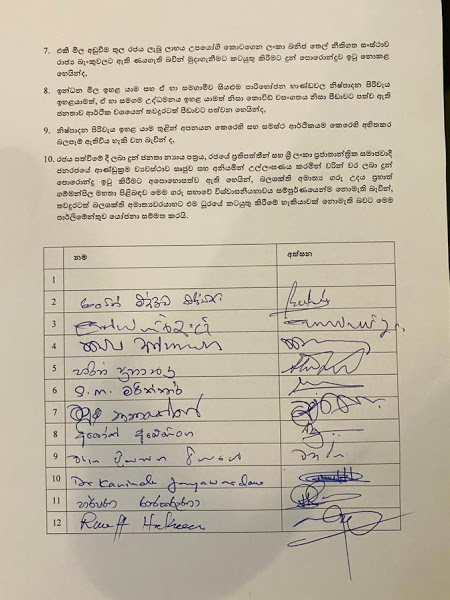 7. එකී මිල අඩුවීම තුල රජය ලැබූ ලාභය උපයෝගී කොටගෙන ලංකා ඛනිජ තෙල් නීතිගත සංස්ථාව
රාජ්‍ය බැංකුවලට ඇති ණයගැති බවින් මුදාගැනීමට කටයුතු කිරීමට දුන් පොරොන්දුව ඉටු නොකළ
හෙයින්ද,
8. ඉන්ධන මිල ඉහළ යාම සහ ඒ හා සමගාමීව සියළුම පාරිභෝජන භාණ්ඩවල නිෂ්පාදන පිරිවැය
ඉහළයාමත්, ඒ හා සමග උද්ධමනය ඉහළ යාමත් නිසා කොවිඩ් වසංගතය නිසා පීඩාවට පත්ව ඇති
ජනතාව ආර්ථික වශයෙන් තවදුරටත් පීඩාවට පත්වන හෙයින්ද,
9. නිෂ්පාදන පිරිවැය ඉහළ යාම තුළින් අපනයන කෙරෙහි සහ සමස්ථ ආර්ථිකයම කෙරෙහි අහිතකර
බලපෑම් ඇතිවිය හැකි වන බැවින් ද,
10. රජය පත්වීමේ දී ලබා දුන් ජනතා න්‍යාය පත්‍රය, රජයේ ප්‍රතිපත්තීන් සහ ශ්‍රී ලංකා ප්‍රජාතාන්ත්‍රික සමාජවාදී
ජනරජයේ ආණ්ඩුක්‍රම ව්‍යවස්ථාව සෘජුව සහ අනියමින් උල්ලංඝණය කරමින් වරින් වර ලබා දුන්
පොරොන්දු ඉටු කිරීමට අපොහොසත්ව ඇති හෙයින්, බලශක්ති අමාත්‍ය ගරු උදය ප්‍රභාත්
ගම්මන්පිල මහතා පිළිබඳව මෙම ගරු සභාවේ විශ්වාසනීයභාවය සම්පූර්ණයෙන්ම නොමැති බැවින්,
තවදුරටත් බලශක්ති අමාත්‍යවරයාහට එම ධුරයේ කටයුතු කිරීමේ හැකියාවක් නොමැති බවට මෙම
පාර්ලිමේන්තුව යෝජනා සම්මත කරයි.
නම අත්සන
1
2
3
4
5 හරින් ප්‍රනාන්දු
6 එස්.එම්. මරික්කාර්
7
8 අශෝක් අබේසිංහ
9
10 Dr Kavinda Jayawardana
11
12 Rauff Hakeem